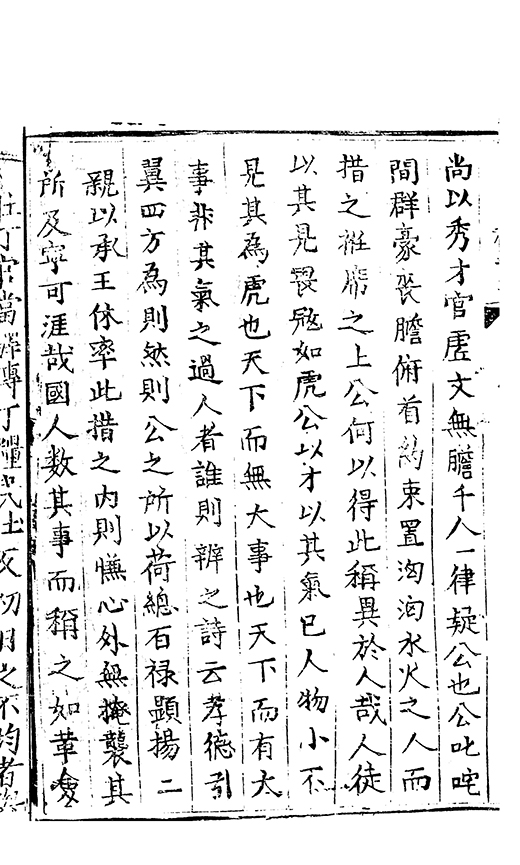 尚以秀才官虛文無膽千人一律疑公也公叱咤
間群豪喪膽俯首約束置洶洶水火之人而
措之袵席之上公何以得此稱異於人哉人徒
以其見畏寇如虎公以才以其氣已人物小不
見其為虎也天下而無大事也天下而有大
事非其氣之過人者誰則辨之詩云孝德引
翼四方為則然則公之所以荷總百祿顯揚二
親以承王休率此措之內則慊心外無掩襲其
所及寧可涯哉國人數其事而稱之如革
丁官當
丁糧
之不均者